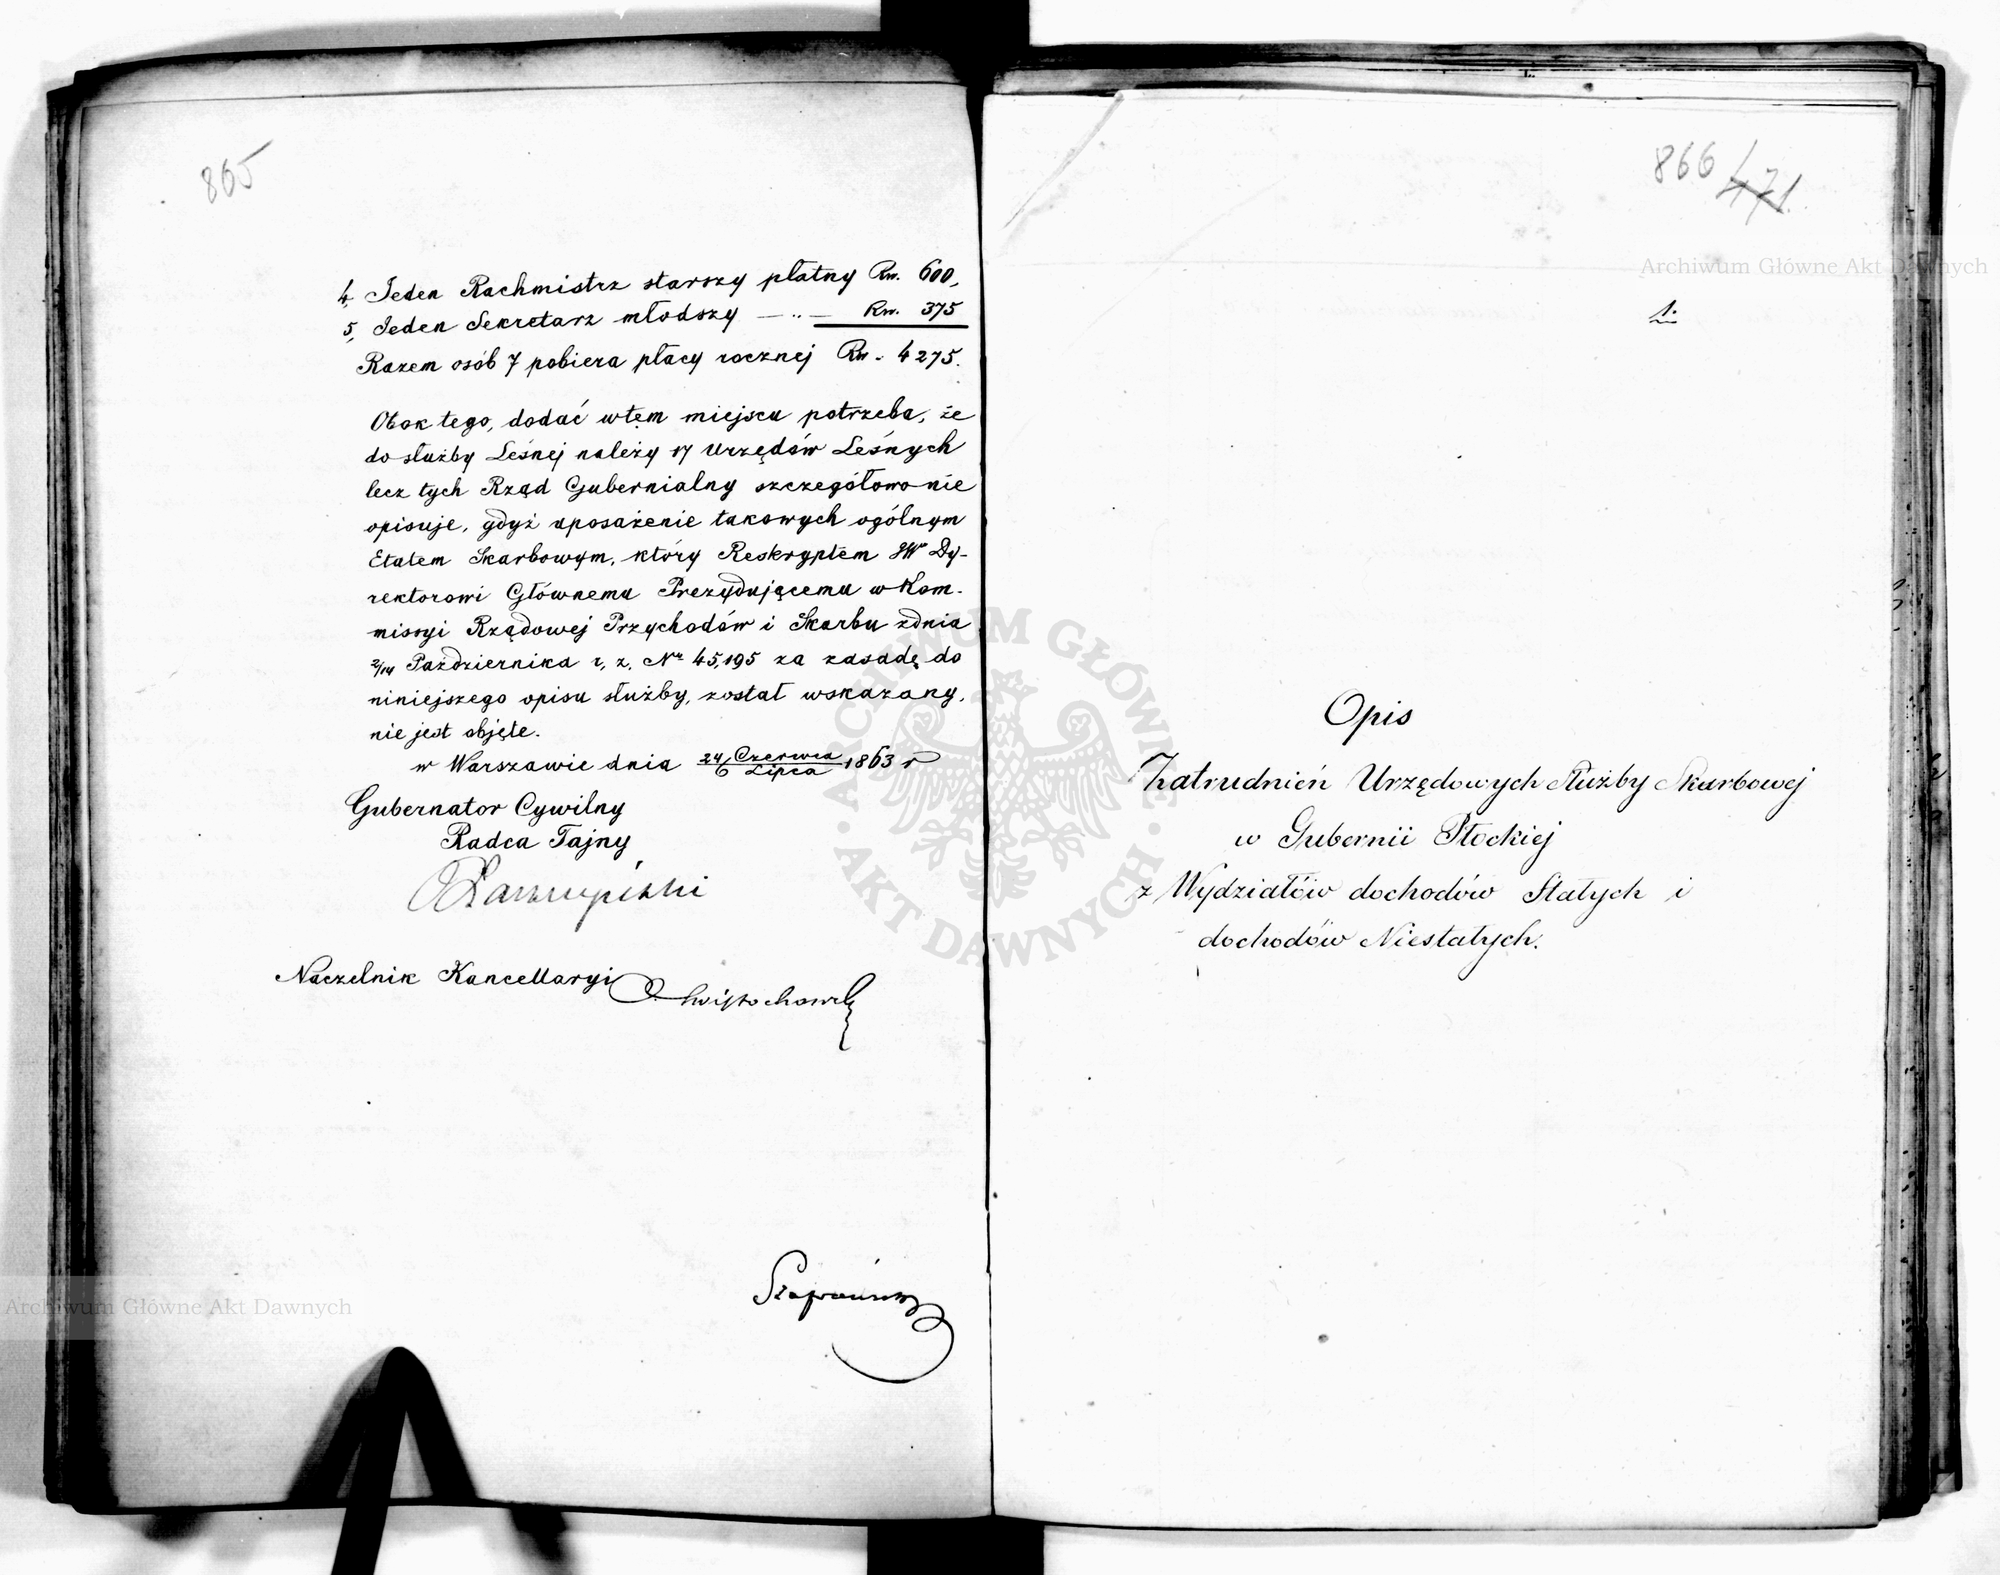 865
4, Jeden Rachmistrz starszy płatny Rs. 600,
5, Jeden Sekretarz młodszy — „ — Rs. 375
Razem osób 7 pobiera płacy rocznej Rs. 4275.
Obok tego, dodać wtem miejscu potrzeba, że
do służby Leśnej należy 17 Urzędów Leśnych
lecz tych Rząd Gubernialny szczegółowo nie
opisuje, gdyż uposażenie takowych ogólnym
Etatem Skarbowym, który Reskryptem JW Dy-
rektorowi Głównemu Prezydującemu w Kom-
missyi Rządowej Przychodów i Skarbu zdnia
2/14 Października r. z. Nr 45,195 za zasadę do
niniejszego opisu służby, został wskazany,
nie jest objęte.
w Warszawie dnia 24 Czerwca / 6 Lipca 1863 r
Gubernator Cywilny
Radca Tajny
Naczelnik Kancellaryi
866 471.
1.
Opis
Zatrudnień Urzędowych Służby Skarbowej
w Gubernii Płockiej
z Wydziałów dochodów Stałych i
dochodów Niestałych.
Archiwum Główne Akt Dawnych
Archiwum Główne Akt Dawnych
ARCHIWUM GŁÓWNE
AKT DAWNYCH